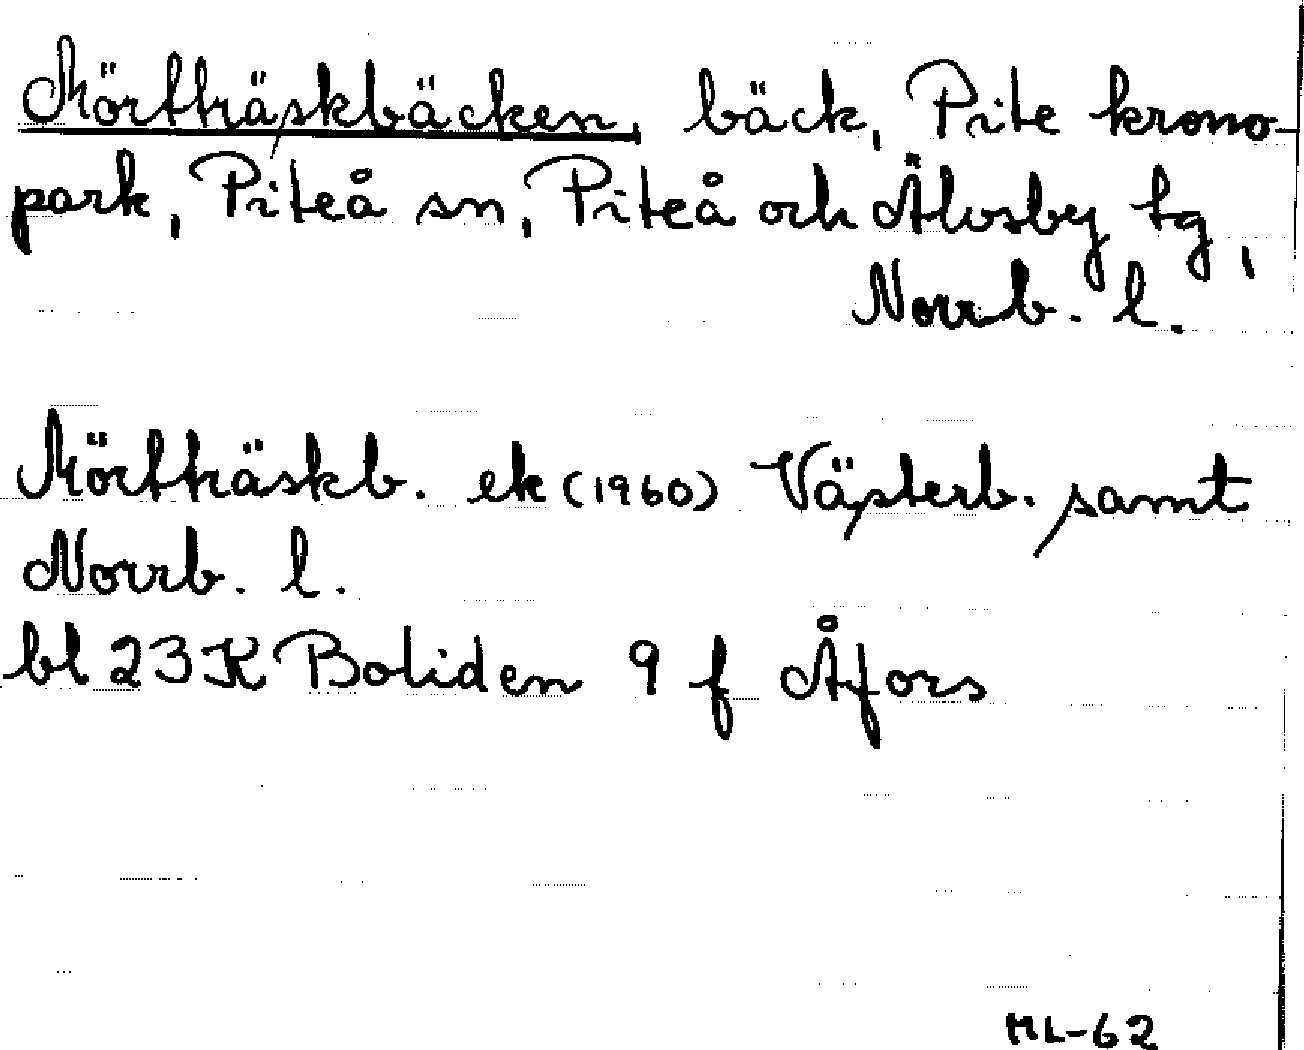 Mörtträskbäcken, bäck, Pite krono-
park, Piteå sn, Piteå och Älvsby tg,
Norrb. l.
Mörtträskb. ek (1960) Västerb. samt
Norrb. l.
bl 23 K Boliden 9 f Åfors
ML-62